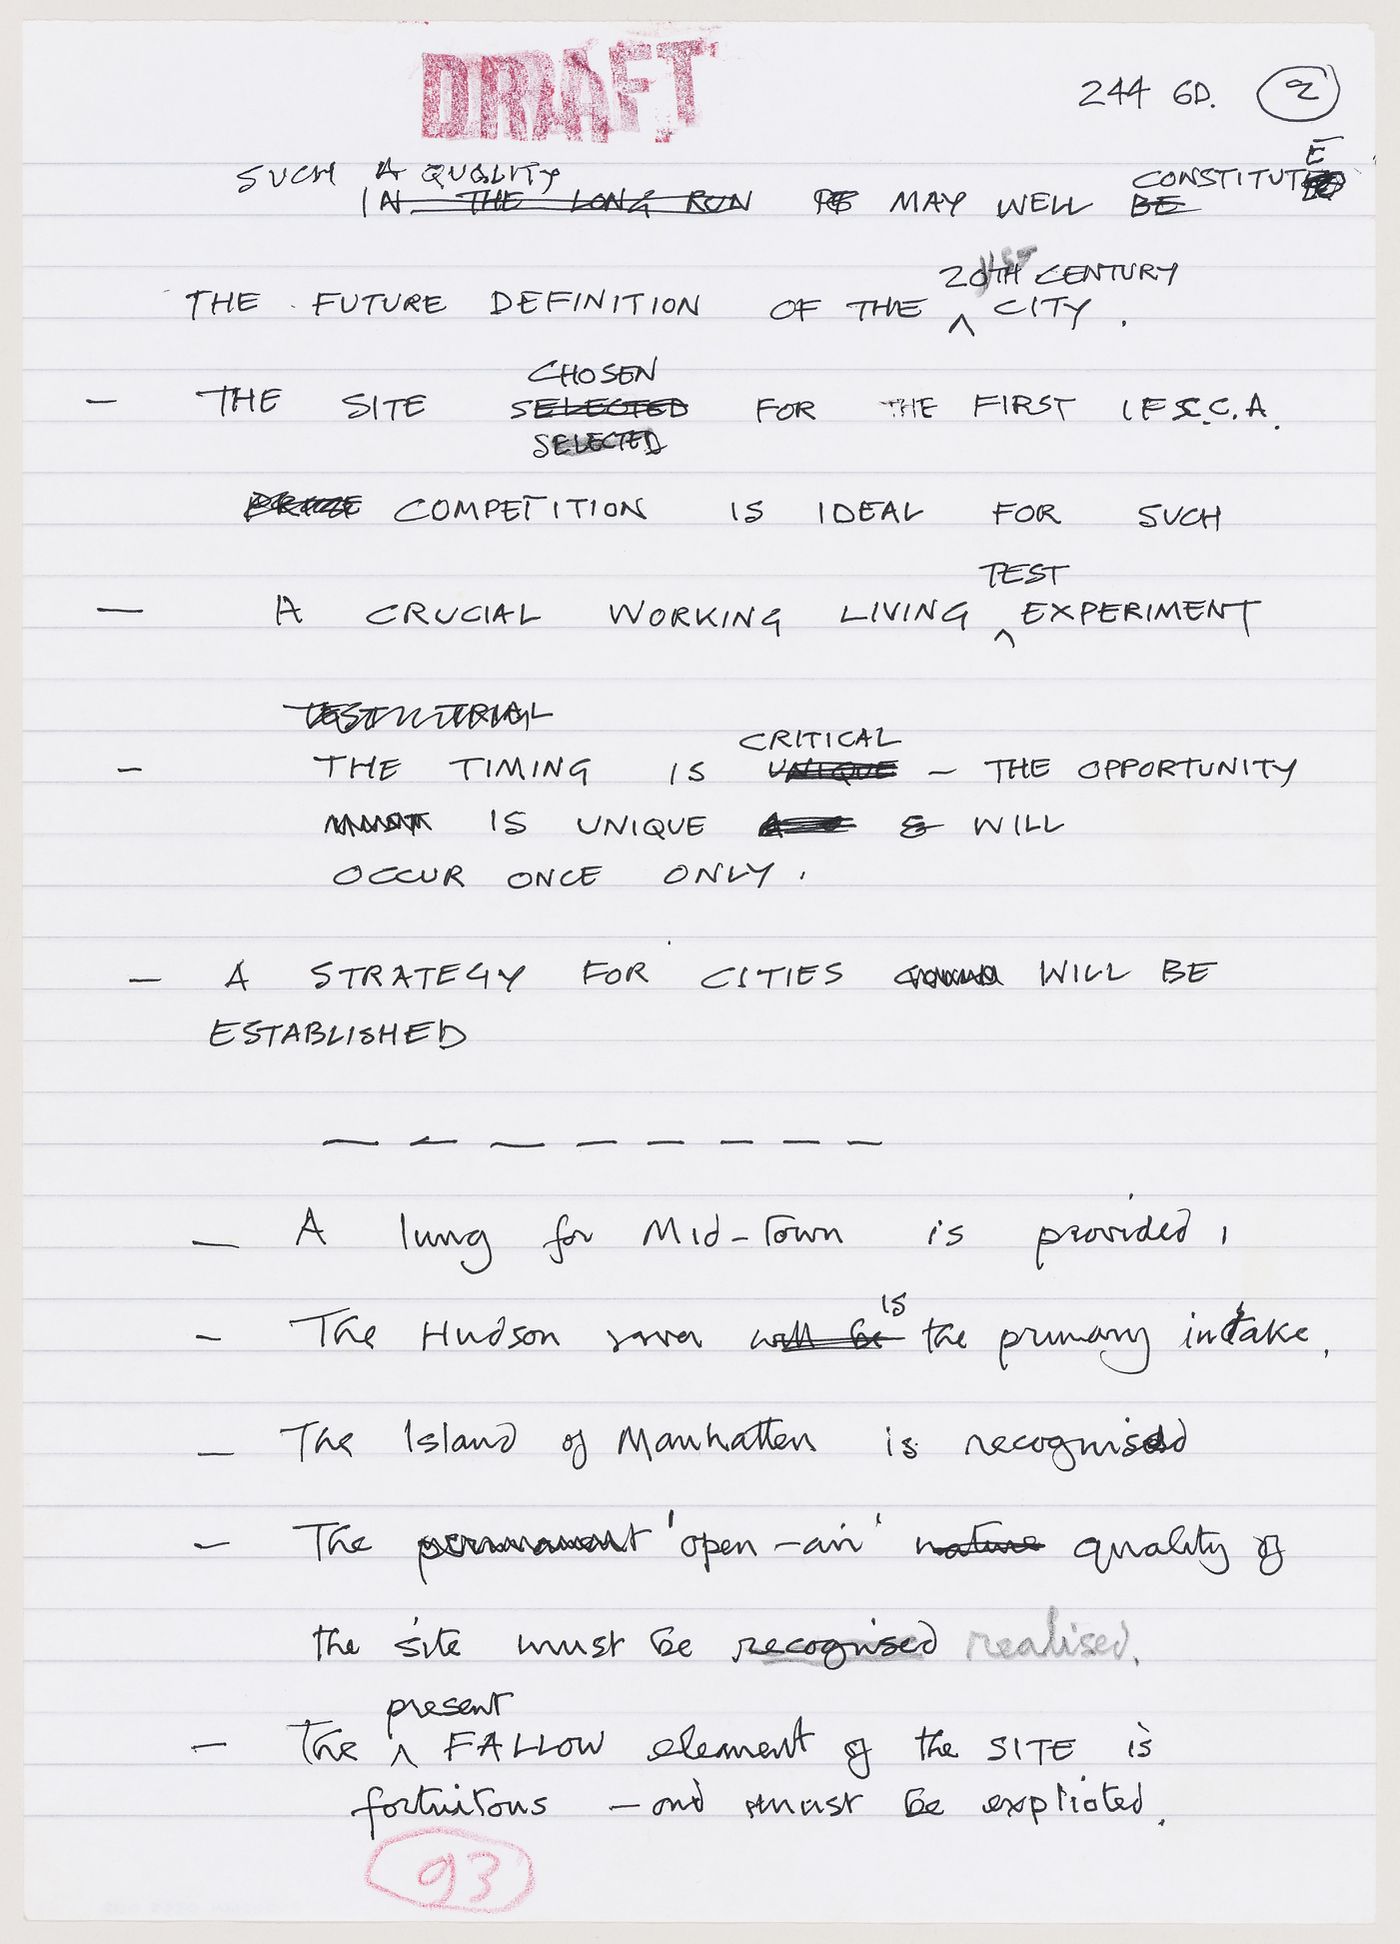 DRAFT
244 GD. 2
SUCH A QUALITY
CONSTITUTE
IN THE LONG RUN MAY WELL BE
20TH CENTURY
THE FUTURE DEFINITION OF THE ^ CITY.
CHOSEN
— THE SITE SELECTED FOR THE FIRST I.F.S.C.A.
SELECTED
COMPETITION IS IDEAL FOR SUCH
TEST
— A CRUCIAL WORKING LIVING ^ EXPERIMENT
TEST TRIAL
CRITICAL
— THE TIMING IS UNIQUE — THE OPPORTUNITY
IS UNIQUE & WILL
OCCUR ONCE ONLY.
— A STRATEGY FOR CITIES WILL BE
ESTABLISHED
— — — — — — — —
— A lung for Mid-Town is provided,
is
— The Hudson river will be the primary intake.
— The Island of Manhatten is recognised
— The permanent 'open-air' nature quality of
the site must be recognised realised.
present
— The ^ FALLOW element of the SITE is
fortuitous — and must be explioted.
93